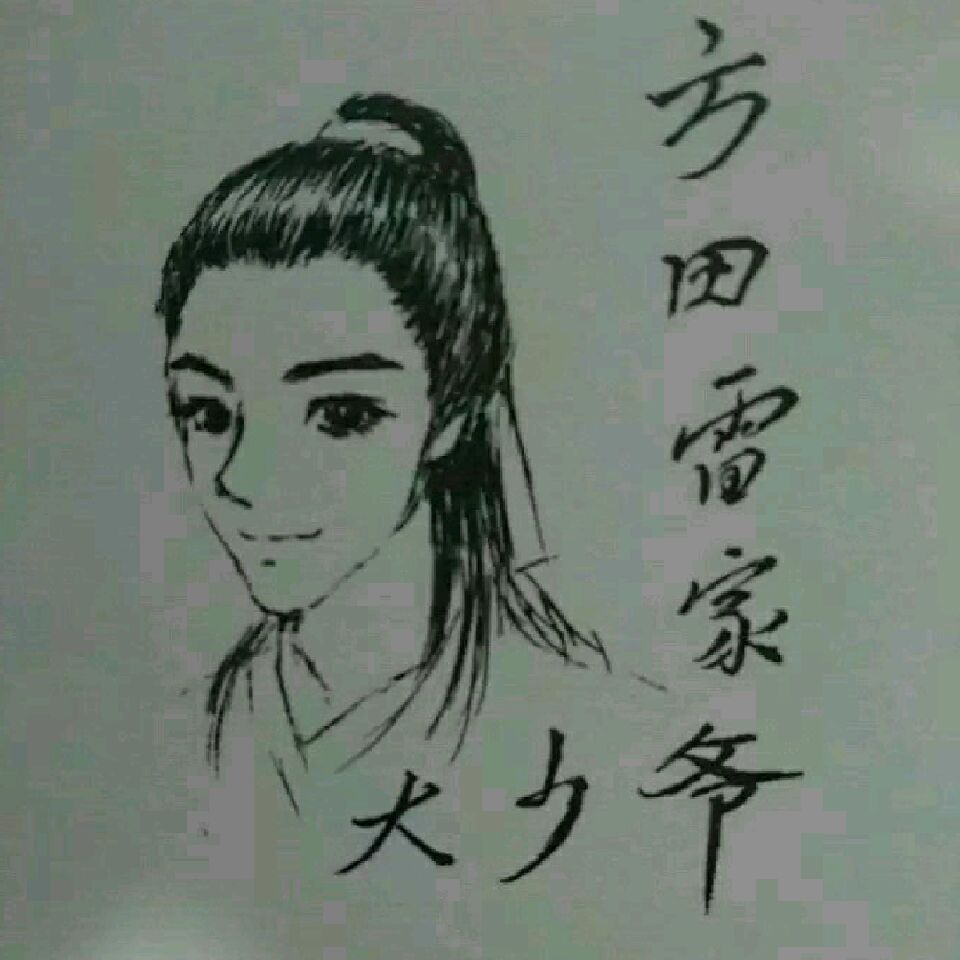 方田雷家
大少爷